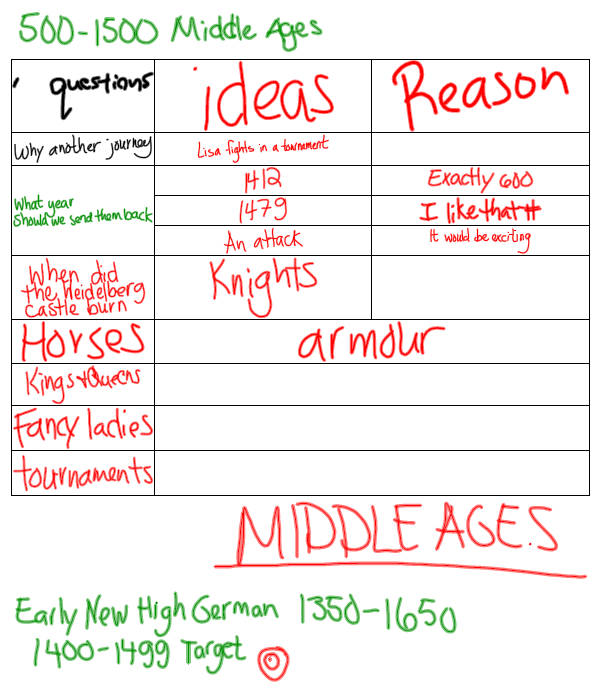 500-1500 Middle Ages
questions ideas Reason
Why another journey Lisa fights in a tournament
What year
Should we send them back
1412 Exactly 600
1479 I like that #
An attack It would be exciting
When did
the Heidelberg
castle burn
Knights
Horses armour
Kings+Queens
Fancy ladies
tournaments
MIDDLE AGES
Early New High German 1350-1650
1400-1499 Target